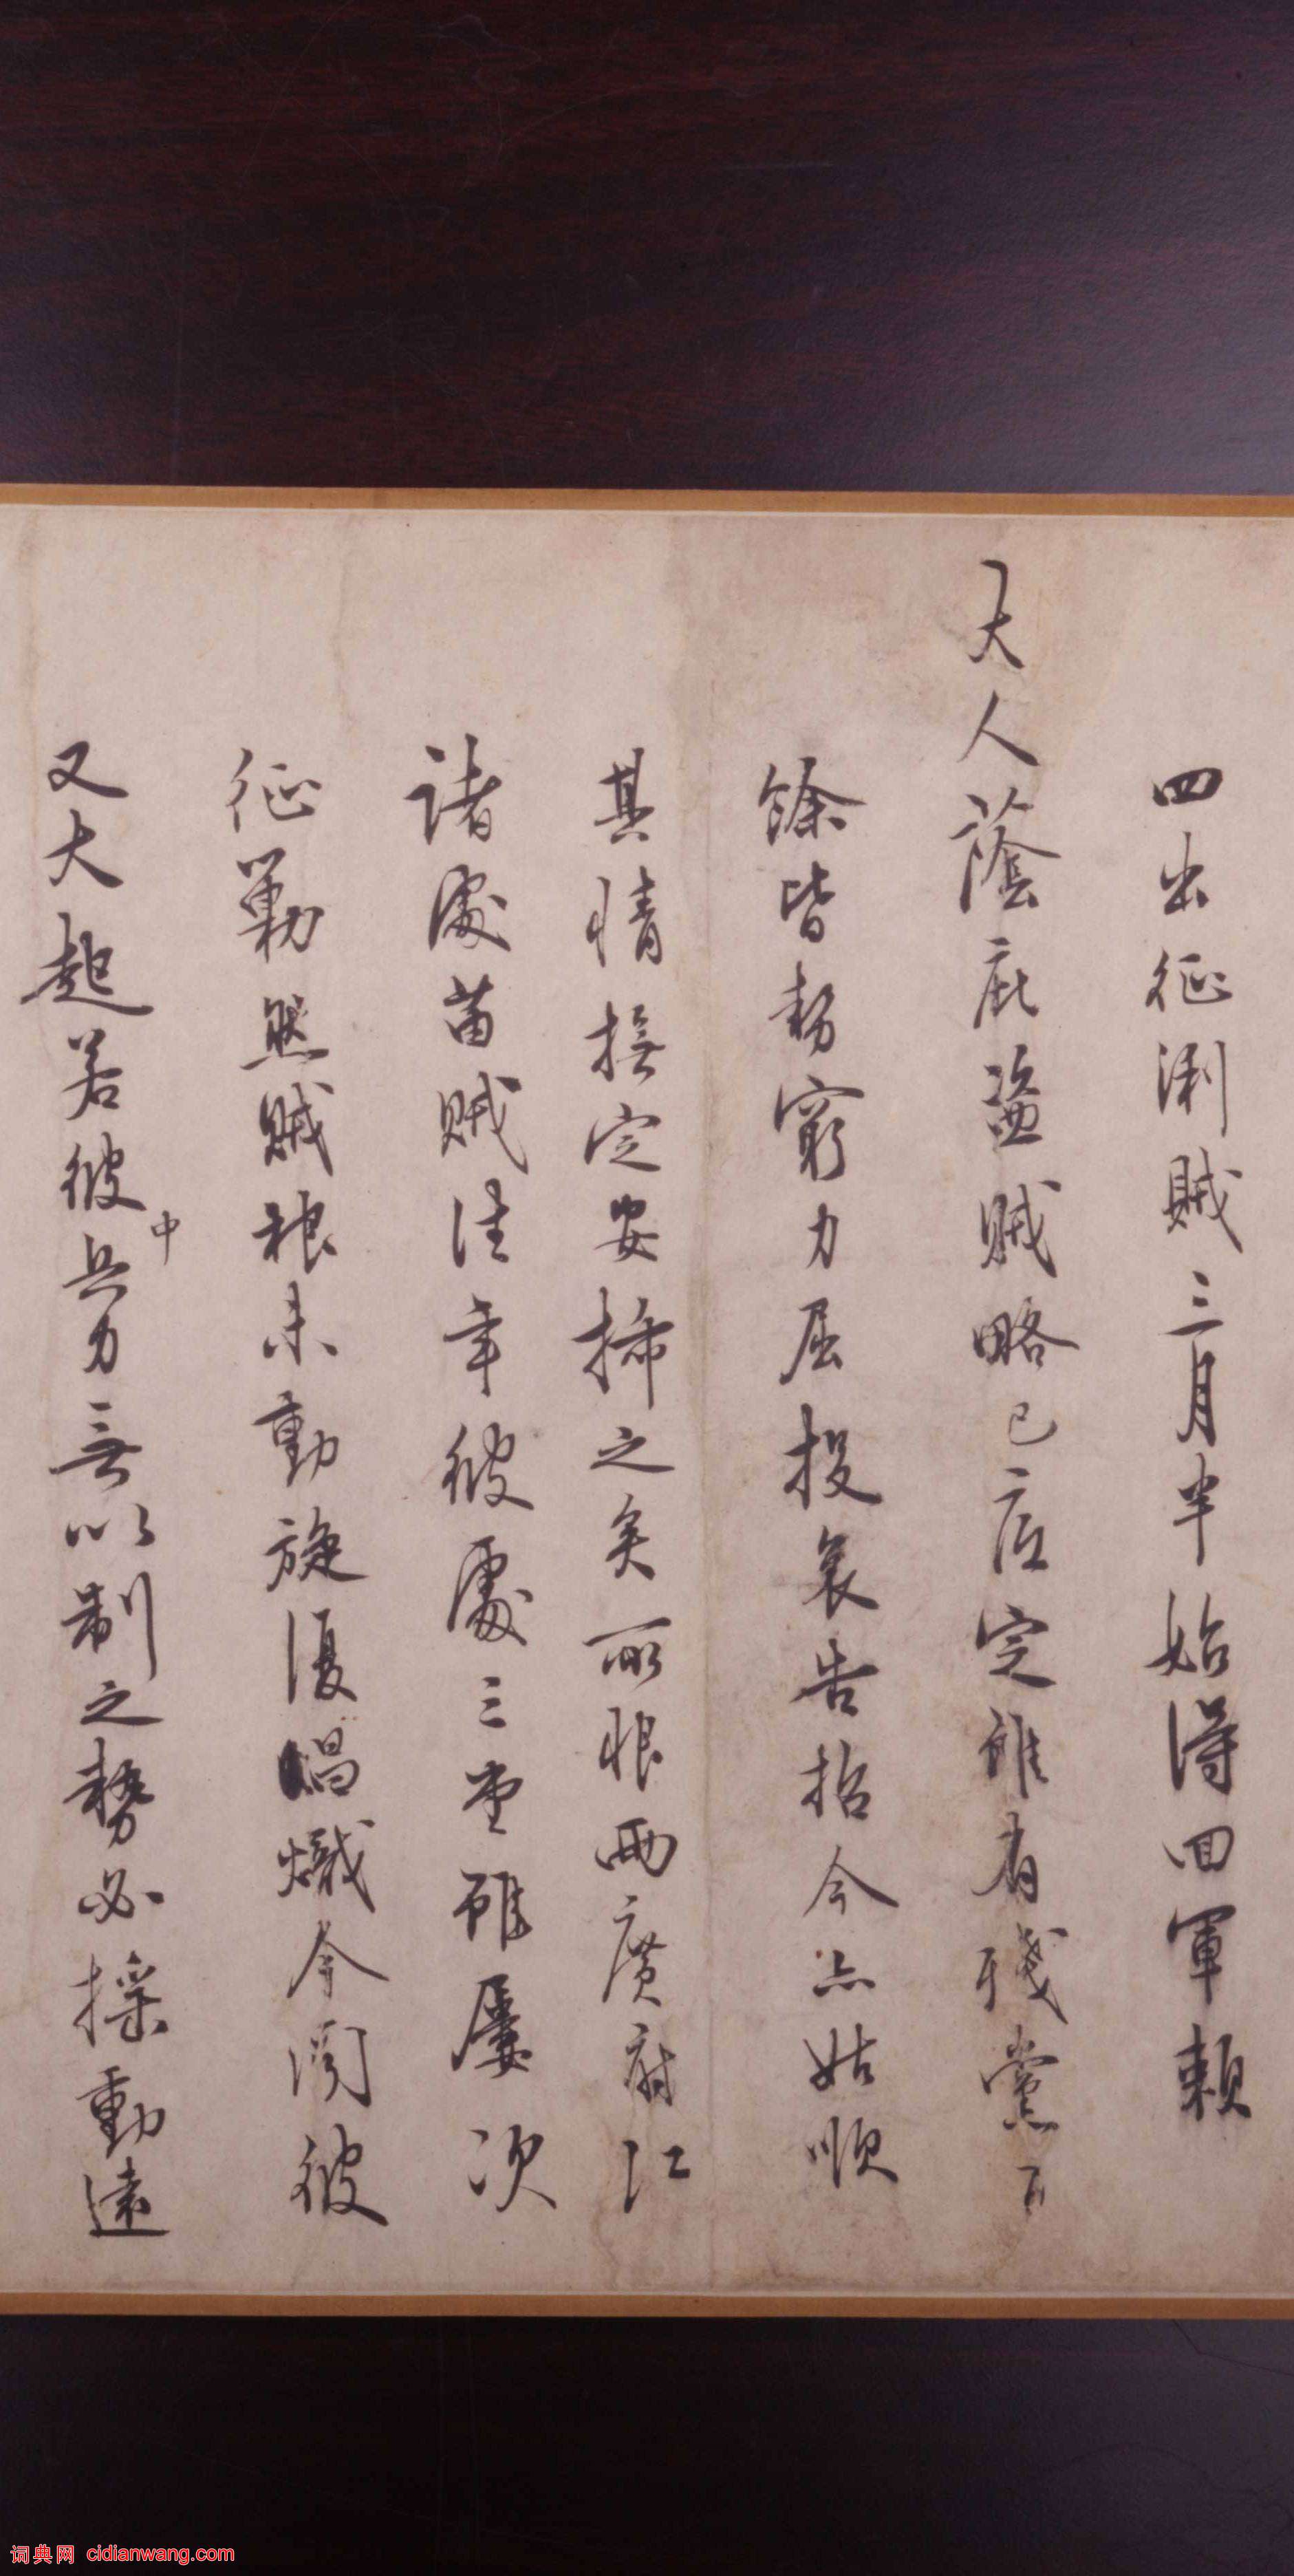 四出征浰賊三月半始得回軍賴
大人蔭庇盜賊略已底定雖有殘黨百
餘皆勢窮力屈投哀告招今亦姑順
其情撫定安揷之矣所恨兩廣府江
諸處苗賊往年彼處三堂雖屢次
征勦然賊根未動旋復昌熾今聞彼
又大起若彼中兵力無以制之勢必搖動遠
词典网 cidianwang.com